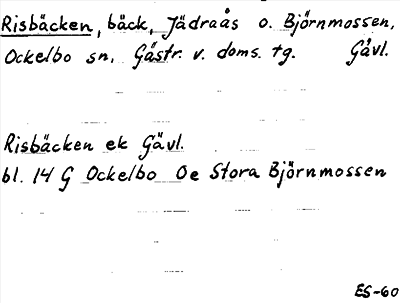 Risbäcken, bäck, Jädraås o. Björnmossen,
Ockelbo sn, Gästr. v. doms. tg. Gävl.
Risbäcken ek Gävl.
bl. 14 G Ockelbo Oe Stora Björnmossen
ES-60